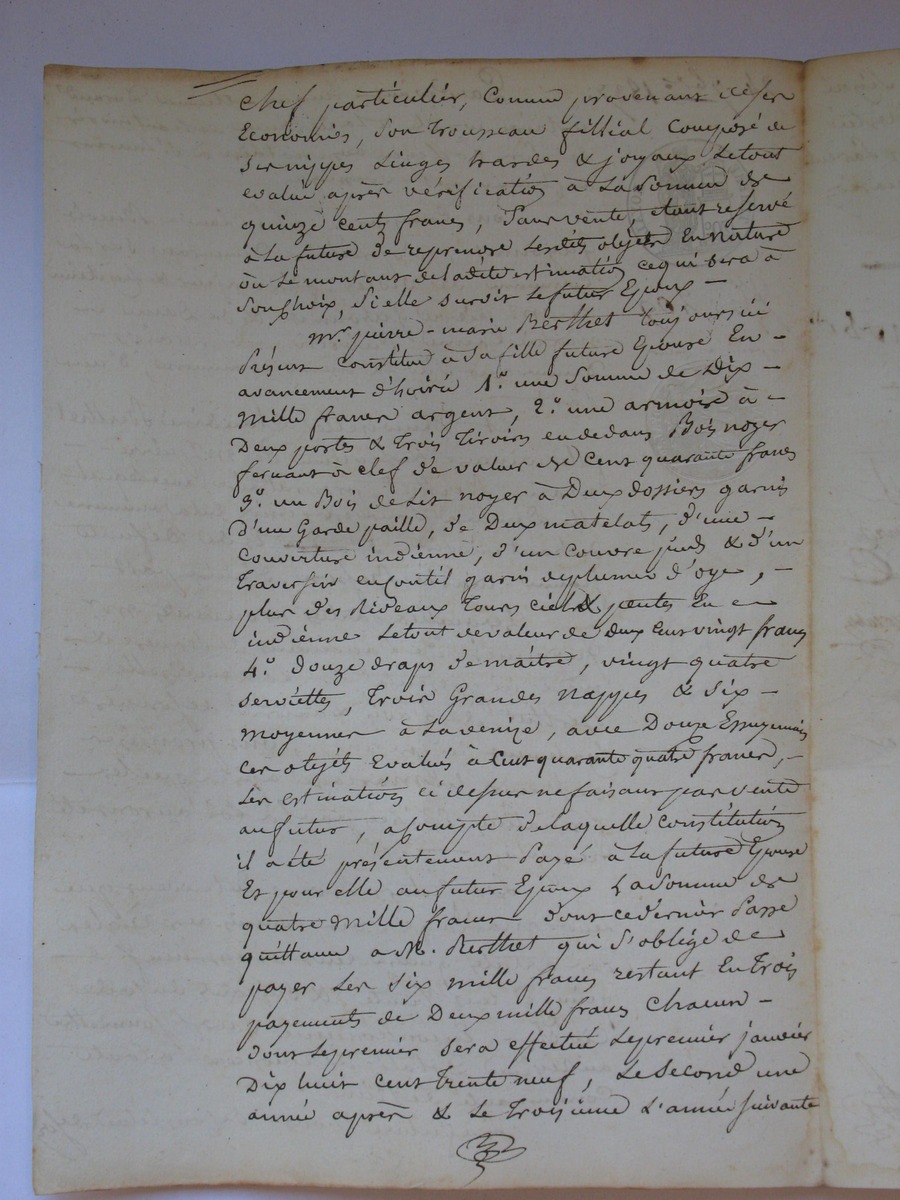 chef particulier, Comme provenant de ses
Economies, Son Trousseau fillial Composé de
ses nippes Linges hardes & joyaux Letout
evalué après vérification à La Somme de
quinze cents francs, Sans vente, étant reservé
à La future de reprendre Lesdits objets En nature
où Le montant deladite estimation ce qui sera à
Son choix, Si elle survit Le futur Epoux —
Mr. pierre-marie Berthet toujours ici
Présent Constitue à Sa fille future Epouse En —
avancement d'hoirie 1.° une Somme de Dix —
Mille francs argent, 2.° une armoire à —
Deux portes & Trois Tiroirs endedans Bois noyer
fermant à clef de valeur de cent quarante francs
3.° un Bois de Lit noyer à Deux dossiers garni
d'un Garde paille, de Deux matelats, d'une —
Couverture indiénne, d'un Couvre pieds & d'un
Traversin en Coutil garni de plumes d'oye, —
plus des Rideaux Tours ciels & pentes En —
indiénne Letout de valeur de deux cent vingt francs
4.° douze draps de maitre, vingt quatre
serviéttes, Trois Grandes nappes & Six —
moyennes à La venize, avec Douze Essuyemains
ces objets Evalués à Cent quarante quatre francs, —
Les estimations ci dessus ne faisant pas vente
au futur, a Compte de laquelle constitution
il a été présentement Payé à La future Epouse
Et pour elle au futur Epoux La Somme de
quatre Mille francs dont ce dernier Passe
quittance à M. Berthet qui S'oblige de
payer Les Six mille francs restant En Trois
payements de Deux mille francs Chacun —
dont Le premier sera effectué Le premier janvier
Dix huit cent Trente neuf, Le Second une
année après & Le Troisième L'année Suivante